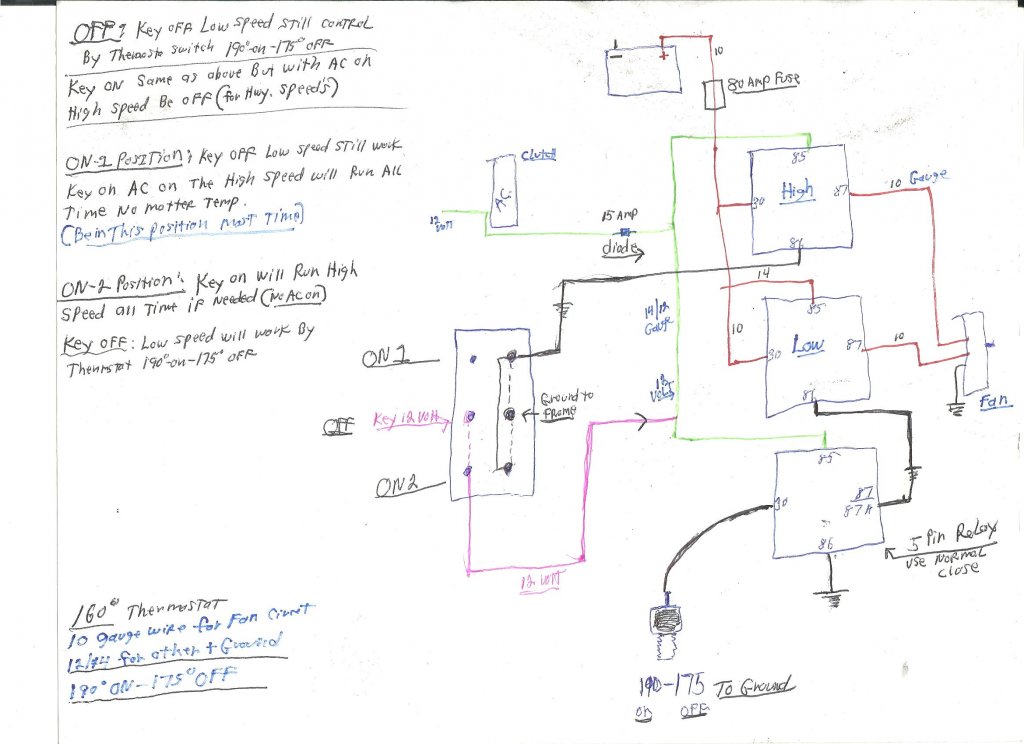 OFF: Key OFF Low Speed Still control
By Thermosto switch 190°-on-175° OFF
Key ON Same as above But with AC on
High Speed Be OFF (for Hwy. Speed's)
ON-1 Position: Key OFF Low Speed Still work
Key on AC on The High Speed will Run All
Time No matter Temp.
(Be in This position most Time)
ON-2 Position: Key on will Run High
Speed all Time if Needed (No AC on)
Key OFF: Low speed will work By
Thermstat 190°-on-175° OFF
160° Thermostat
10 gauge wire for Fan Circut
12/14 for other + Ground
190° ON-175° OFF
- +
10
80 Amp Fuse
Clutch
A/C
12 volt
15 Amp
diode
85
High
30
87
86
10 Gauge
14
14/12 Gauge
12 Volts
10
85
Low
30
87
86
10
Fan
ON 1
OFF
ON 2
Key 12 Volt
Ground to
Frame
12 Volt
85
30
87
87A
86
5 Pin Relay
use Normal
close
190-175 To Ground
on OFF